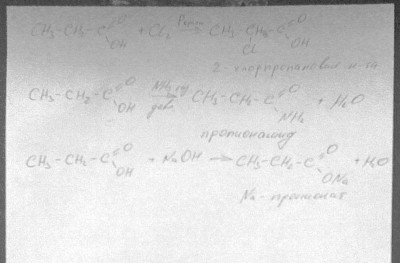 CH₃-CH₂-C=O OH + Cl₂ → CH₃ CH-C=O OH
Cl
2-хлорпропановая к-та
CH₃-CH₂-C=O OH → CH₃-CH₂-C=O NH₂ + H₂O
пропионамид
CH₃-CH₂-C=O OH + NaOH → CH₃-CH₂-C=O ONa + H₂O
Na-пропионат